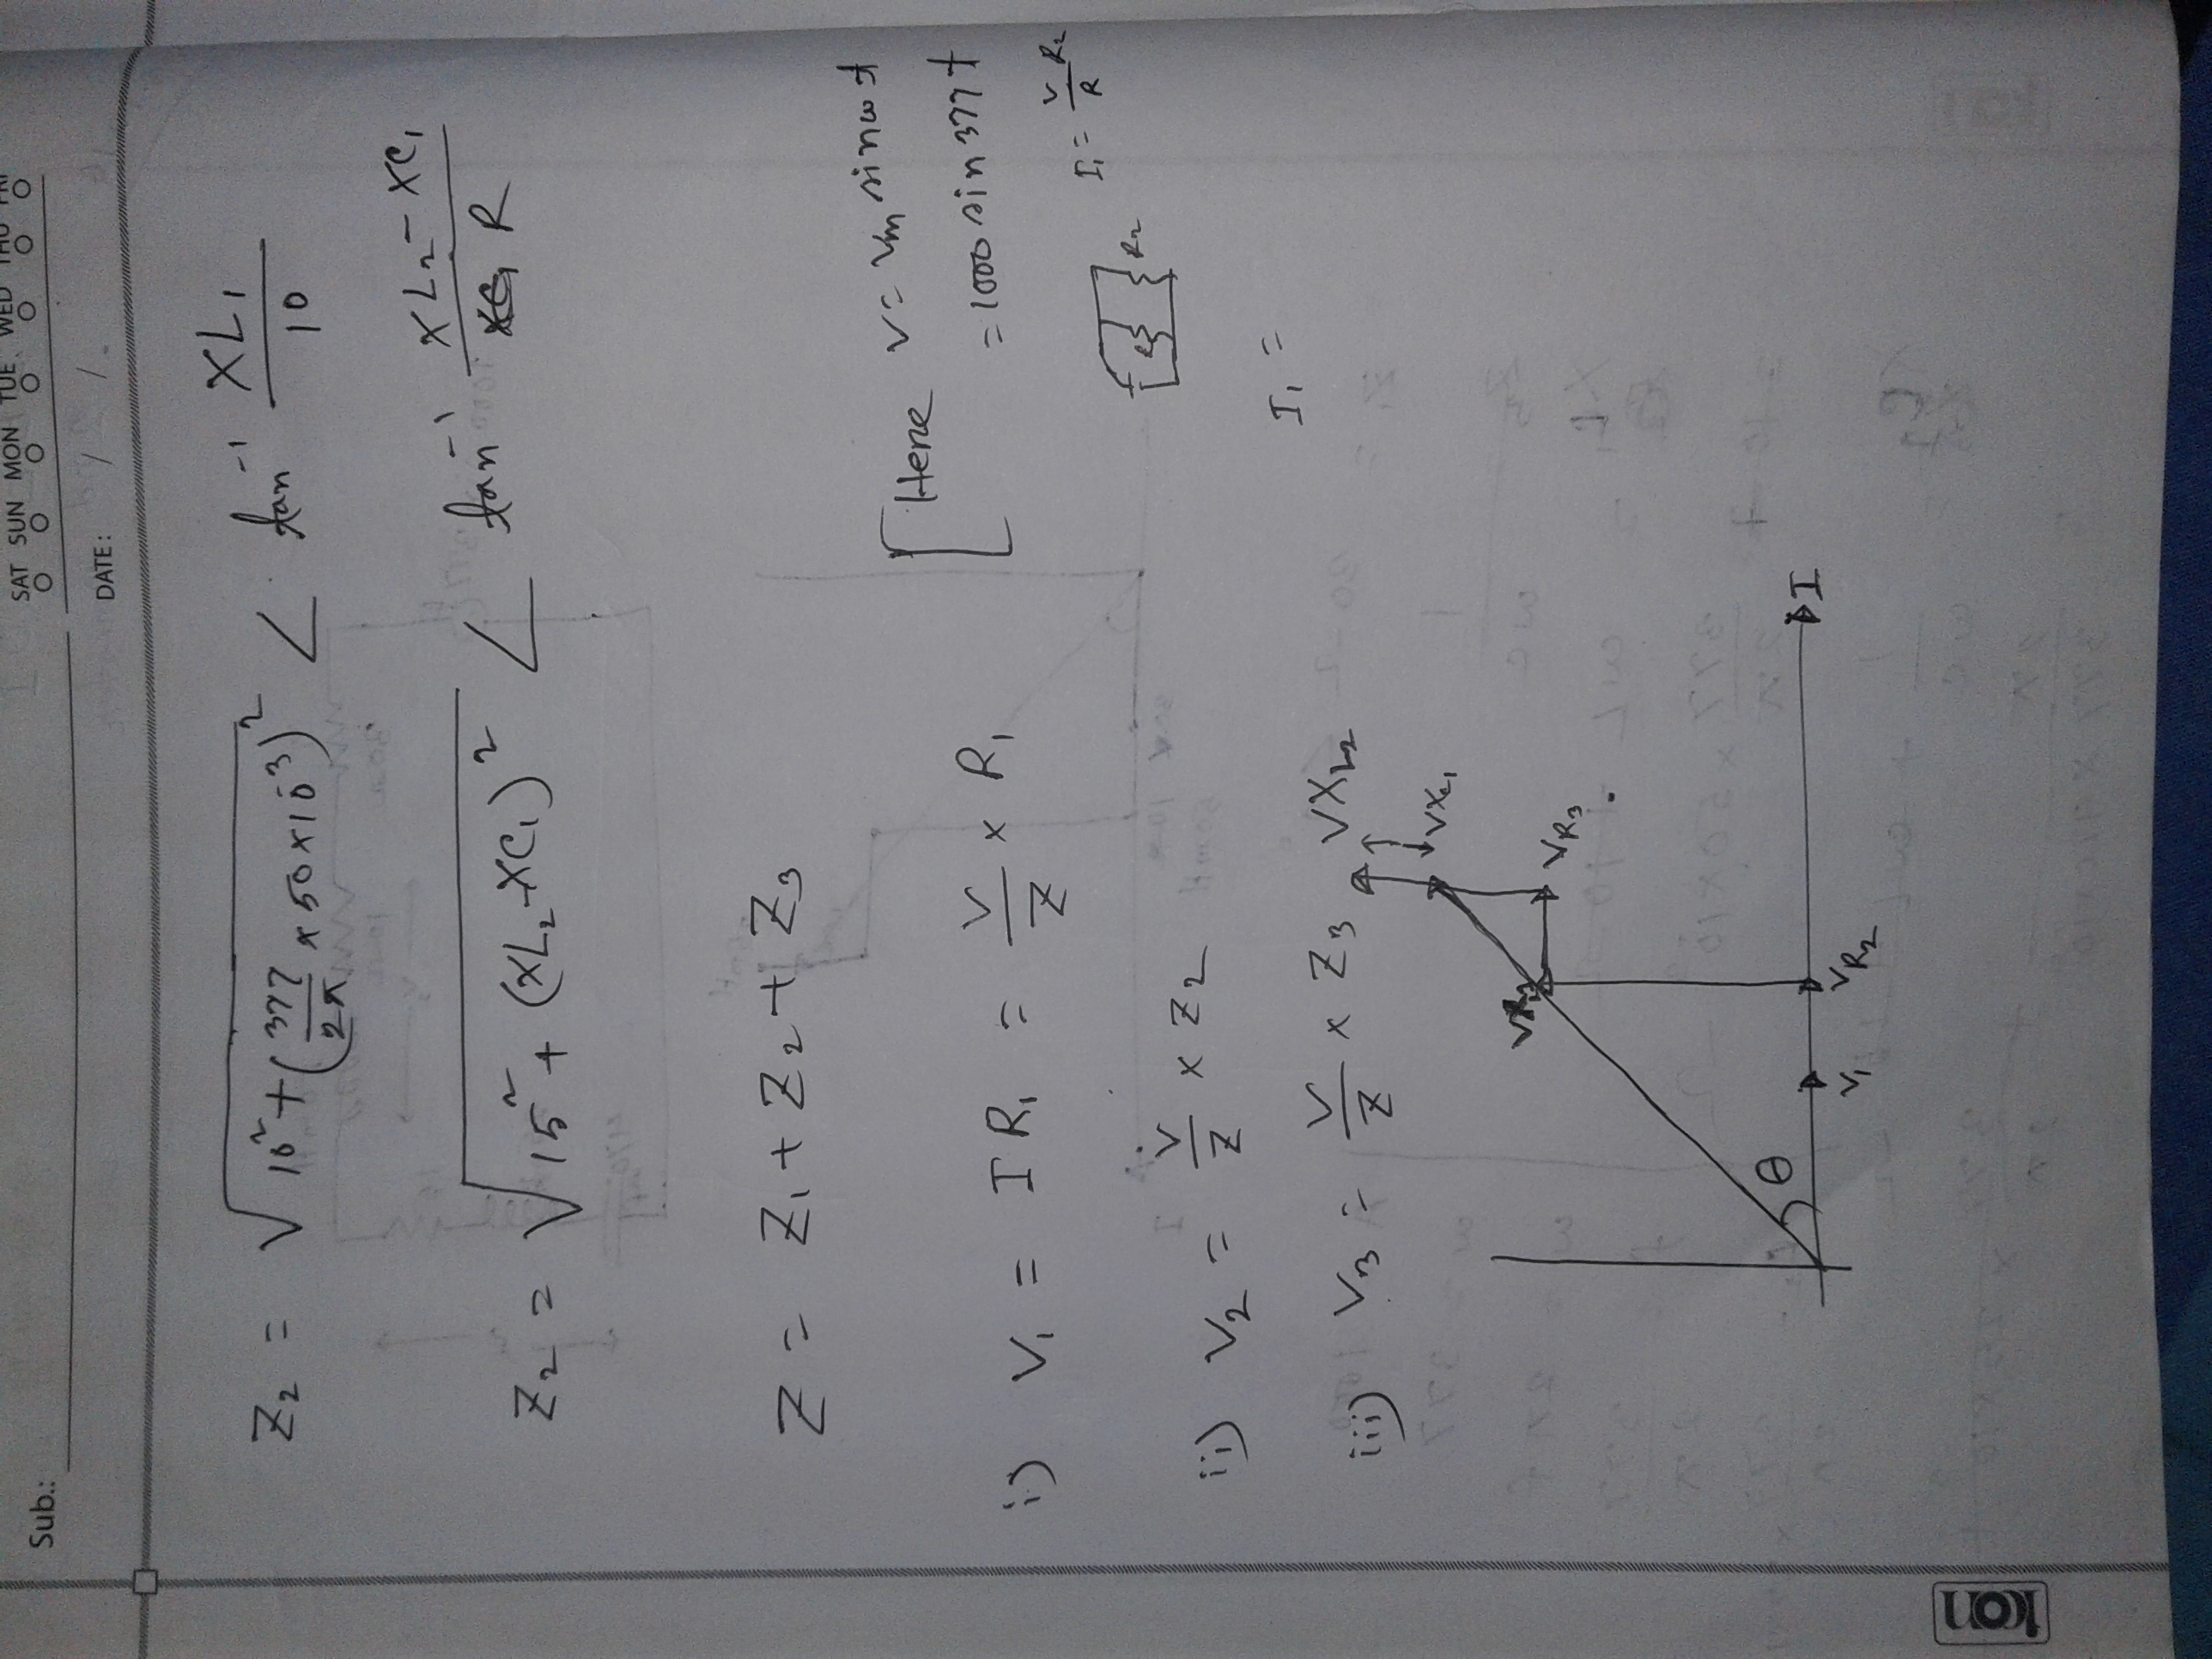 Sub.:
SAT SUN MON TUE WED THU FRI
DATE: / /
Z₂ = √(10² + (377/2π × 50×10⁻³)²) ∠ tan⁻¹ XL₁/10
Z₂ = √(15² + (XL₂-XC₁)²) ∠ tan⁻¹ (XL₂-XC₁)/R
Z = Z₁ + Z₂ + Z₃
[Here v = Vm sinωt
= 1000 sin 377t
i) V₁ = IR₁ = V/Z × R₁
I₁ = V/R R₂
R₂
ii) V₂ = V/Z × Z₂
I₁ =
iii) V₃ = V/Z × Z₃
VXL₂
VXC₁
VR₃
θ
I
V₁
VR₂
icon